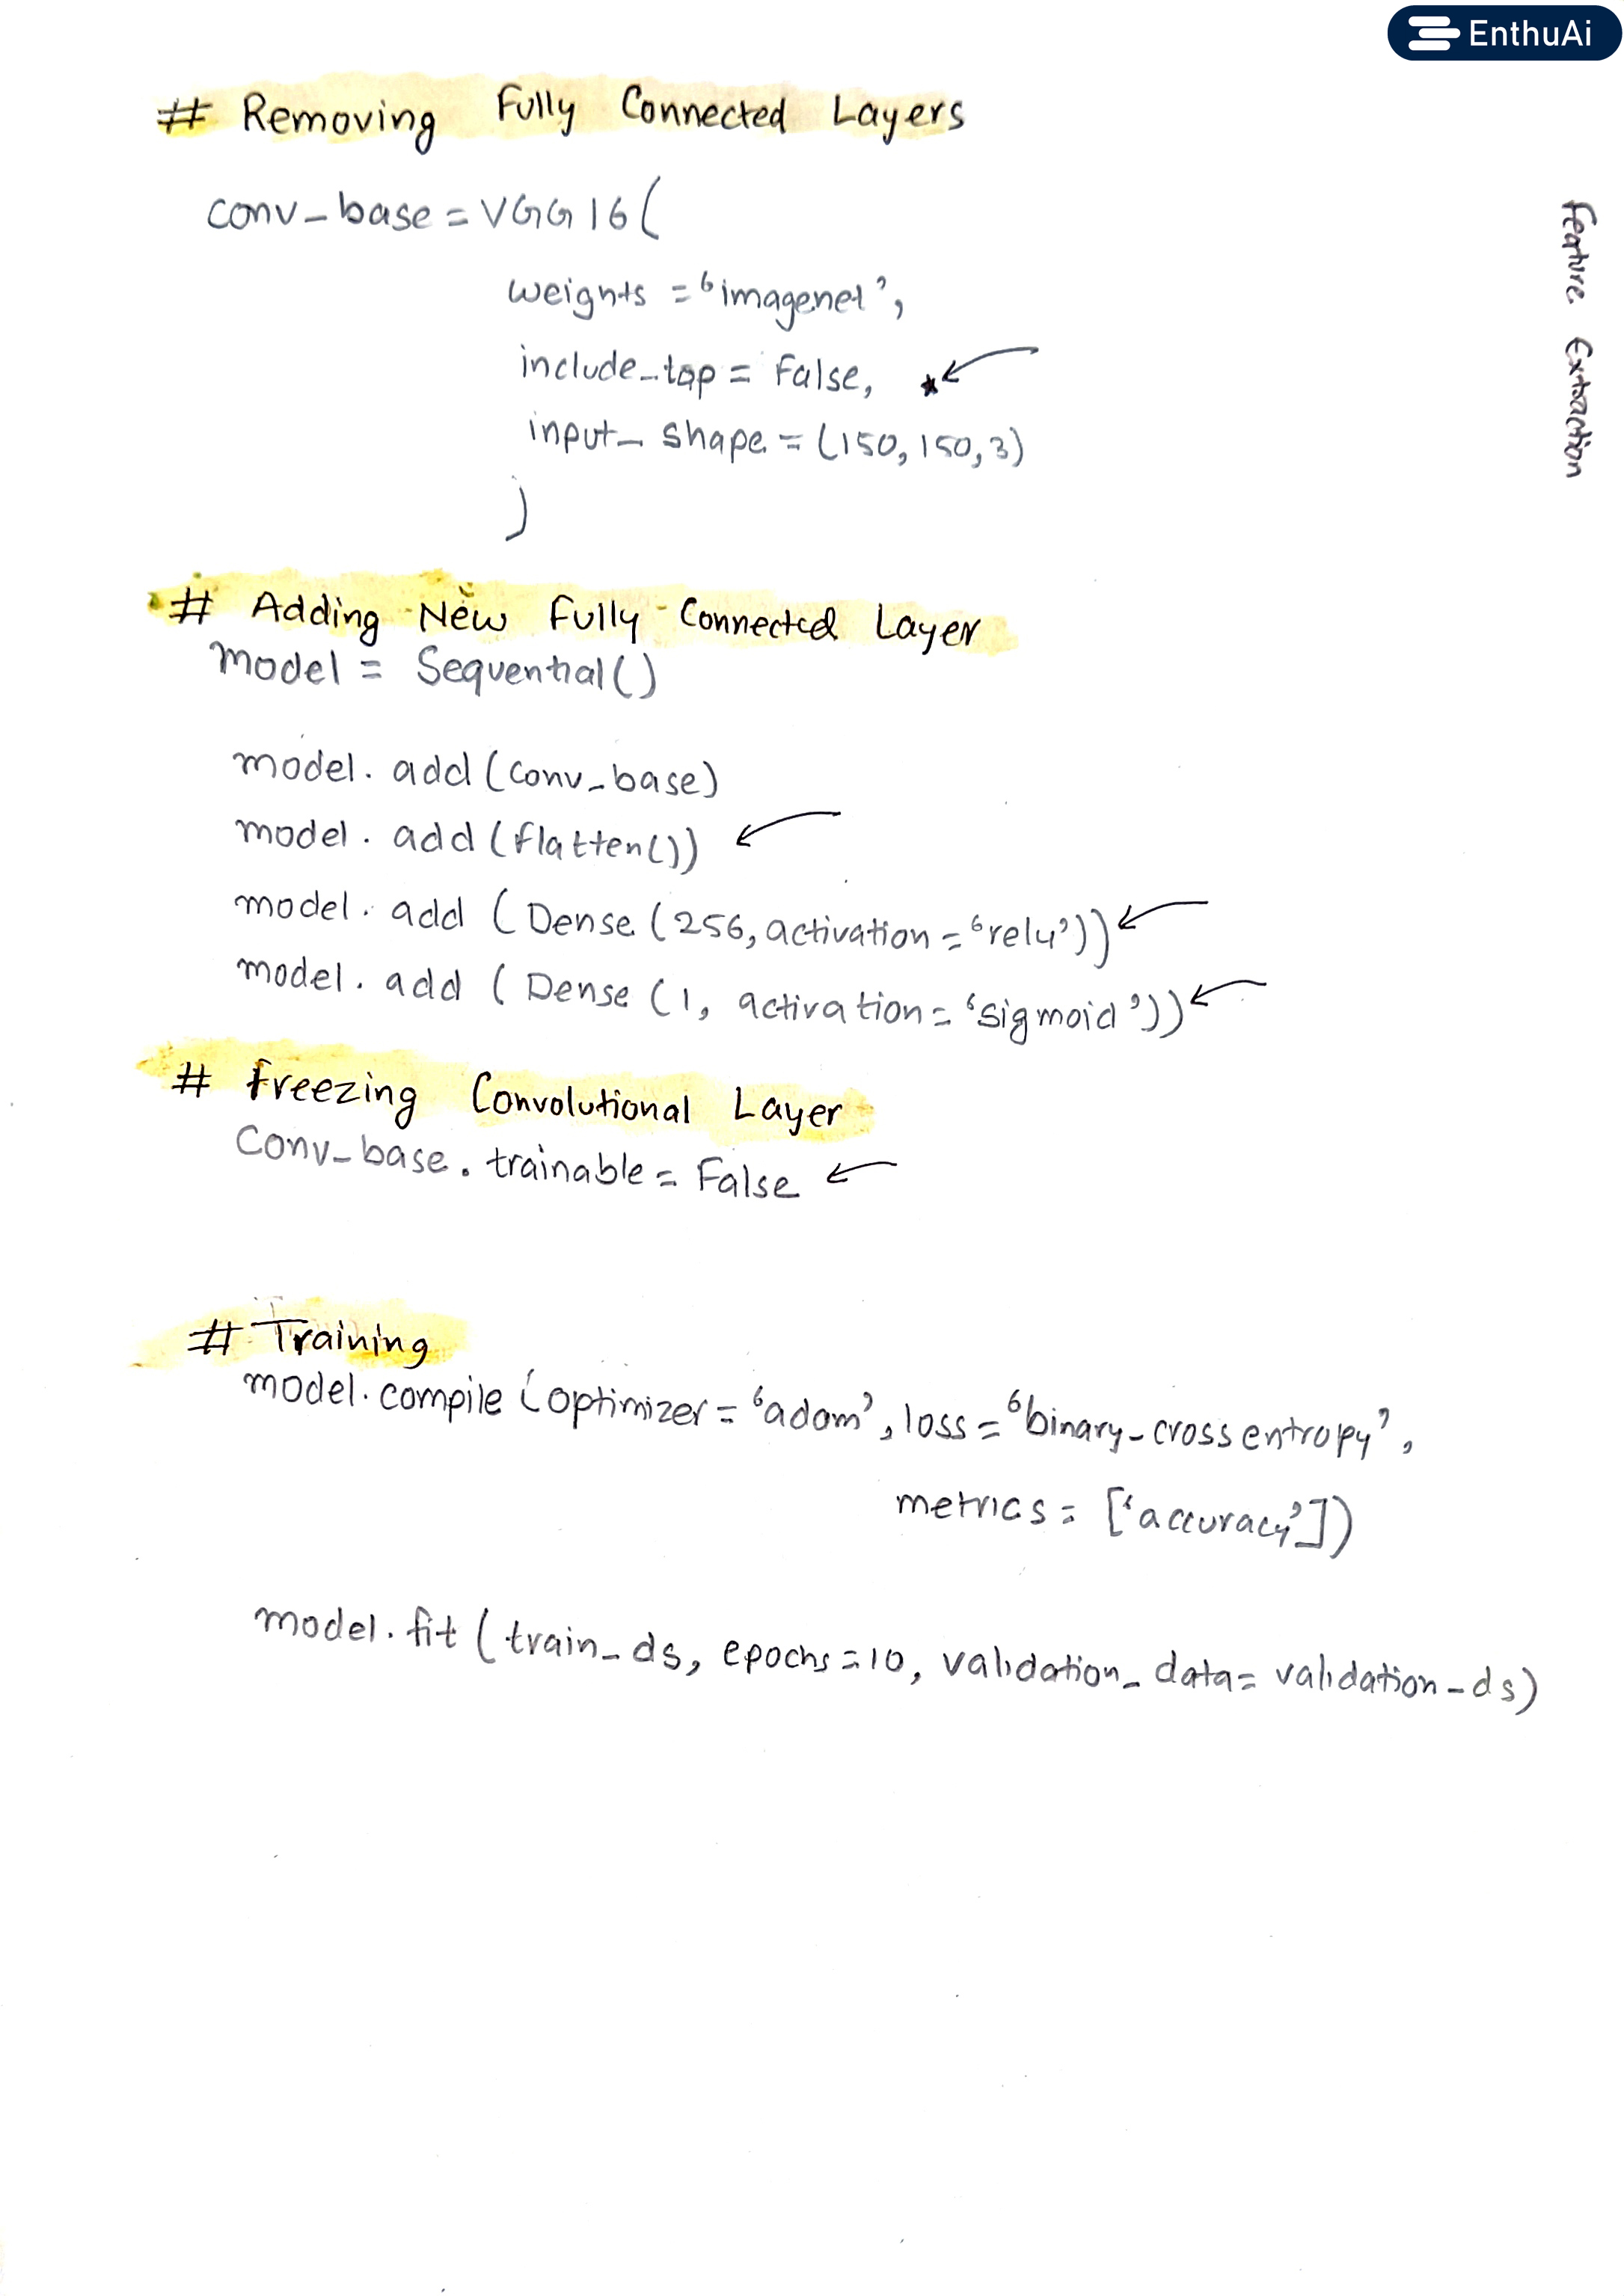 EnthuAi
# Removing Fully Connected Layers
conv_base = VGG16(
weights = 'imagenet',
include_top = False,
input_shape = (150, 150, 3)
)
Feature Extraction
# Adding New Fully Connected Layer
model = Sequential()
model.add(conv_base)
model.add(flatten())
model.add(Dense(256, activation = 'relu'))
model.add(Dense(1, activation = 'sigmoid'))
# Freezing Convolutional Layer
Conv_base.trainable = False
# Training
model.compile(optimizer = 'adam', loss = 'binary_crossentropy',
metrics = ['accuracy'])
model.fit(train_ds, epochs = 10, validation_data = validation_ds)